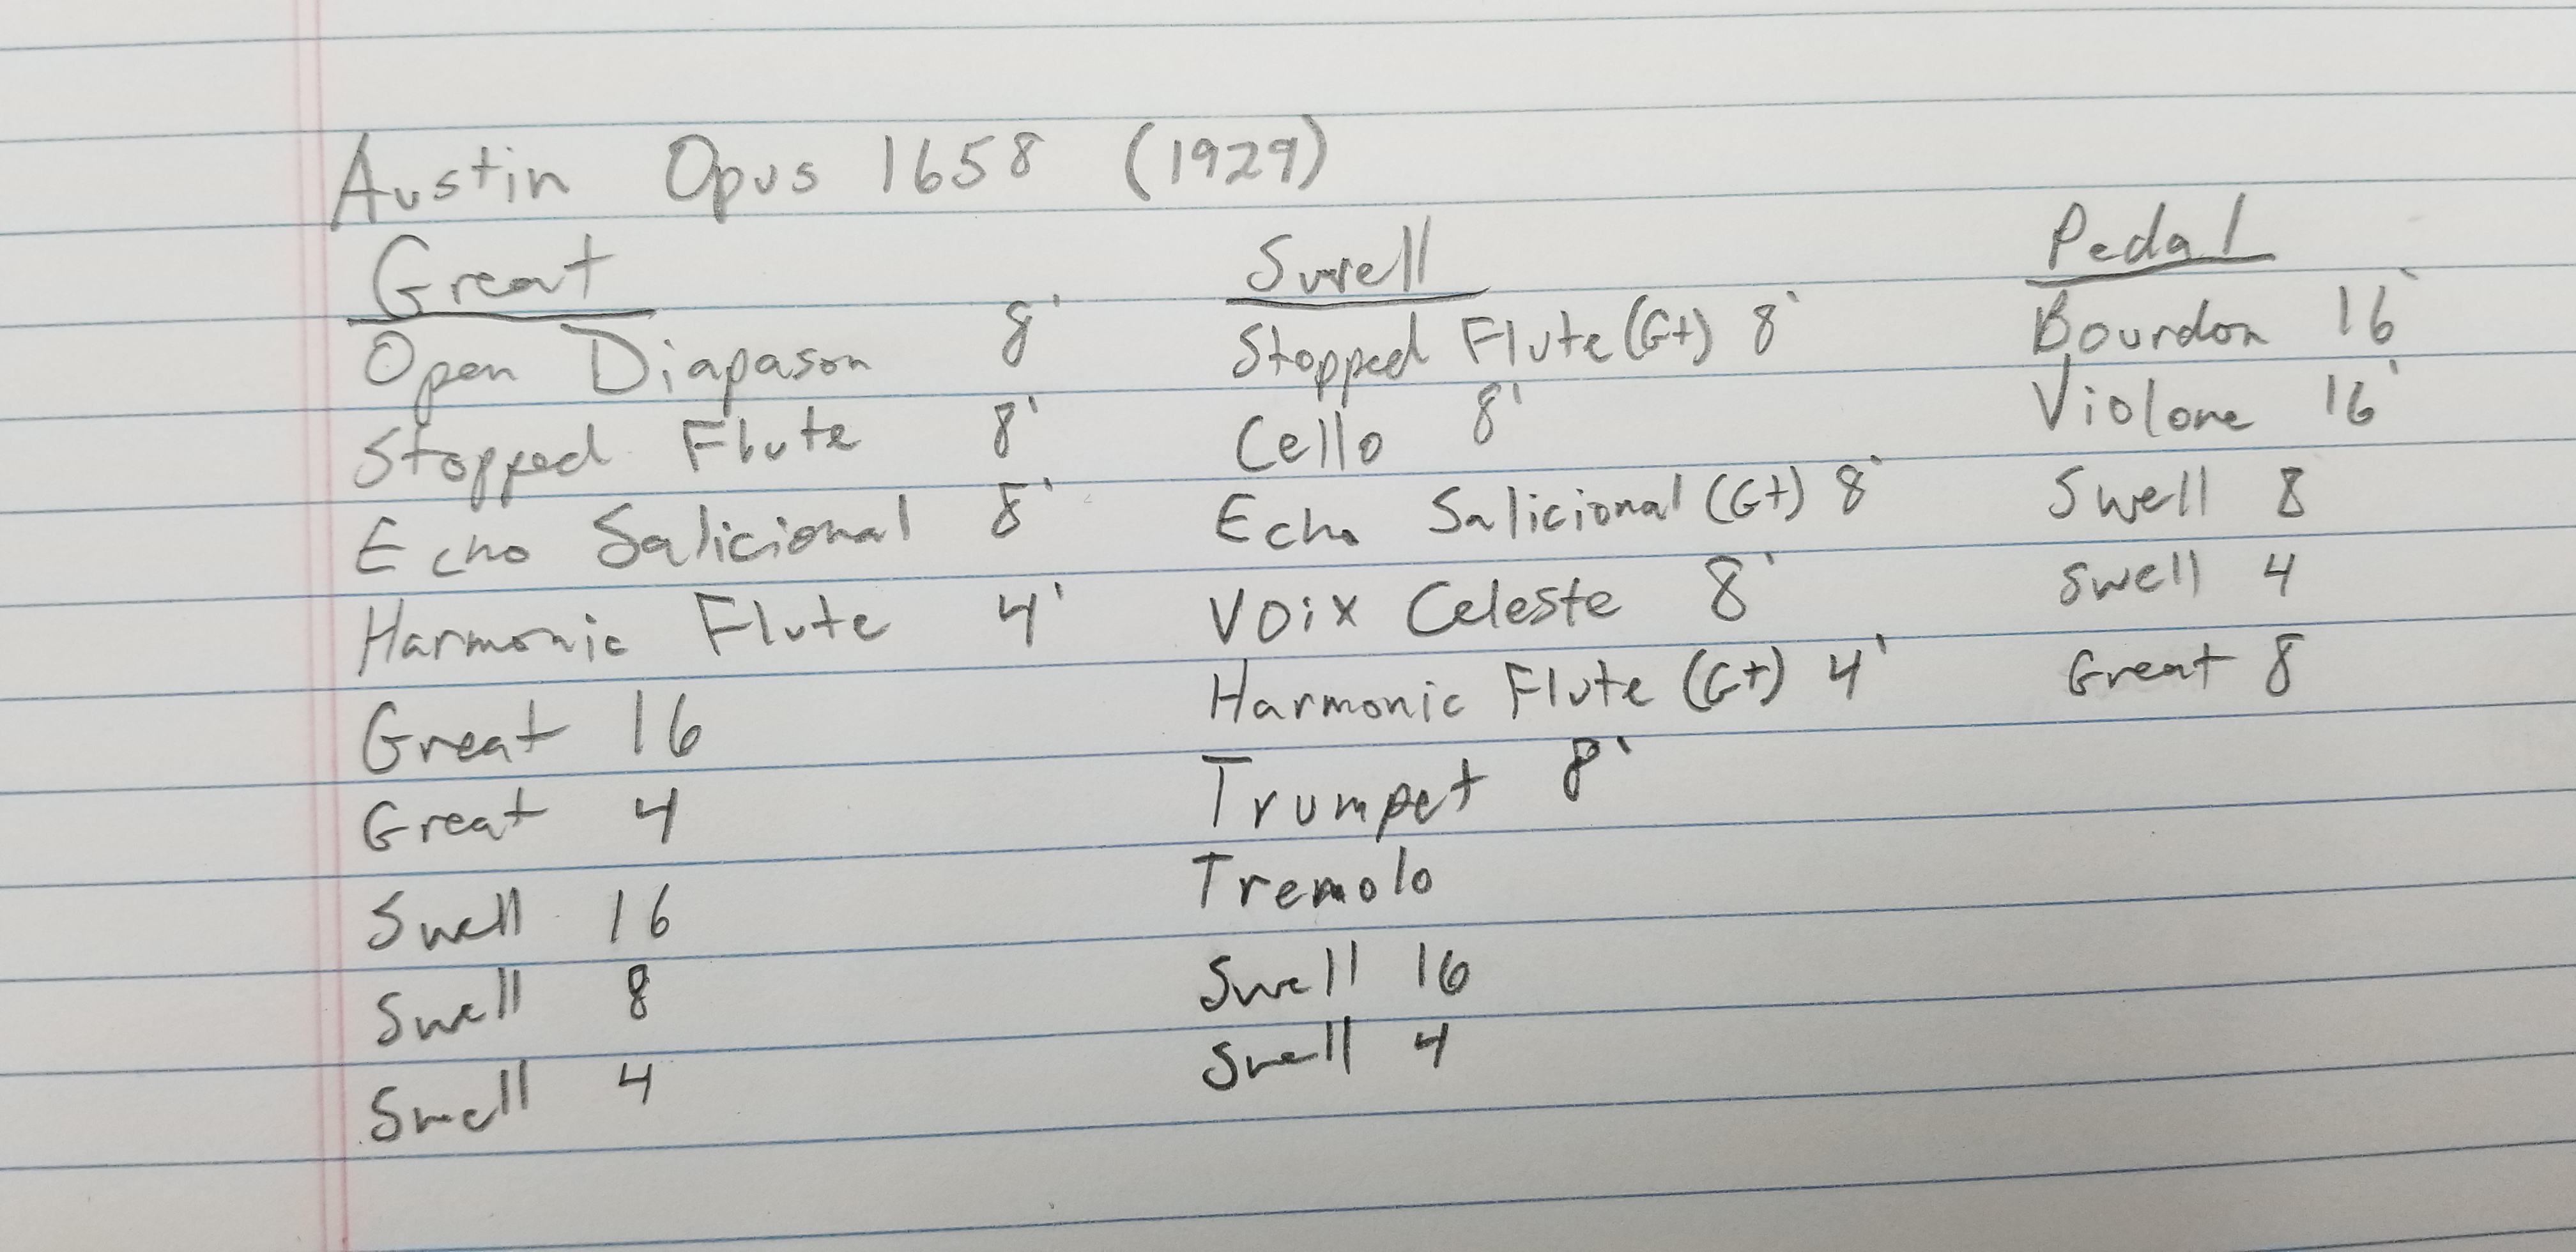 Austin Opus 1658 (1929)
Great
Open Diapason 8'
Stopped Flute 8'
Echo Salicional 8'
Harmonic Flute 4'
Great 16
Great 4
Swell 16
Swell 8
Swell 4
Swell
Stopped Flute (Gt) 8'
Cello 8'
Echo Salicional (Gt) 8'
Voix Celeste 8'
Harmonic Flute (Gt) 4'
Trumpet 8'
Tremolo
Swell 16
Swell 4
Pedal
Bourdon 16'
Violone 16'
Swell 8
Swell 4
Great 8